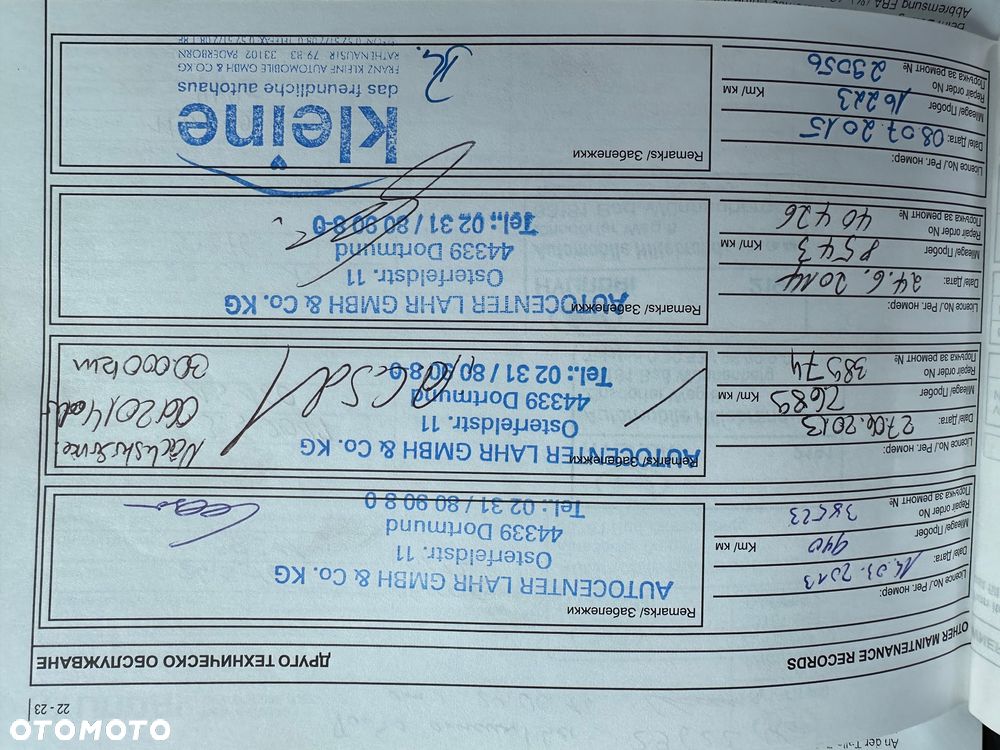 22 - 23
OTHER MAINTENANCE RECORDS
ДРУГО ТЕХНИЧЕСКО ОБСЛУЖВАНЕ
Licence No./ Рег. номер:
Date/ Дата: 14.03.2013
Mileage/ Пробег 940 Km/ км
Repair order No 38523
Поръчка за ремонт №
Remarks/ Забележки
AUTOCENTER LAHR GMBH & Co. KG
Osterfeldstr. 11
44339 Dortmund
Tel.: 02 31 / 80 90 8 0
Licence No./ Рег. номер:
Date/ Дата: 27.06.2013
Mileage/ Пробег 2689 Km/ км
Repair order No 38974
Поръчка за ремонт №
Remarks/ Забележки
AUTOCENTER LAHR GMBH & Co. KG
Osterfeldstr. 11
44339 Dortmund
Tel.: 02 31 / 80 90 8-0
06 2014 oder
30.000 km
Licence No./ Рег. номер:
Date/ Дата: 24.6.2014
Mileage/ Пробег 8543 Km/ км
Repair order No 40426
Поръчка за ремонт №
Remarks/ Забележки
AUTOCENTER LAHR GMBH & Co. KG
Osterfeldstr. 11
44339 Dortmund
Tel.: 02 31 / 80 90 8-0
Licence No./ Рег. номер:
Date/ Дата: 08.07.2015
Mileage/ Пробег 16223 Km/ км
Repair order No 29056
Поръчка за ремонт №
Remarks/ Забележки
kleine
das freundliche autohaus
FRANZ KLEINE AUTOMOBILE GMBH & CO KG
RATHENAUSTR 79 83 33102 PADERBORN
OTOMOTO